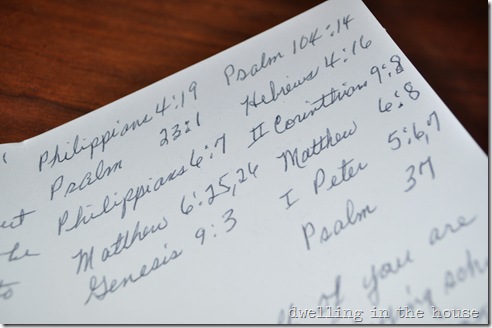 Philippians 4:19 Psalm 104:14
Psalm 23:1 Hebrews 4:16
Philippians 6:7 II Corinthians 9:8
Matthew 6:25,26 Matthew 6:8
to Genesis 9:3 I Peter 5:6,7
Psalm 37
if you are
dwelling in the house